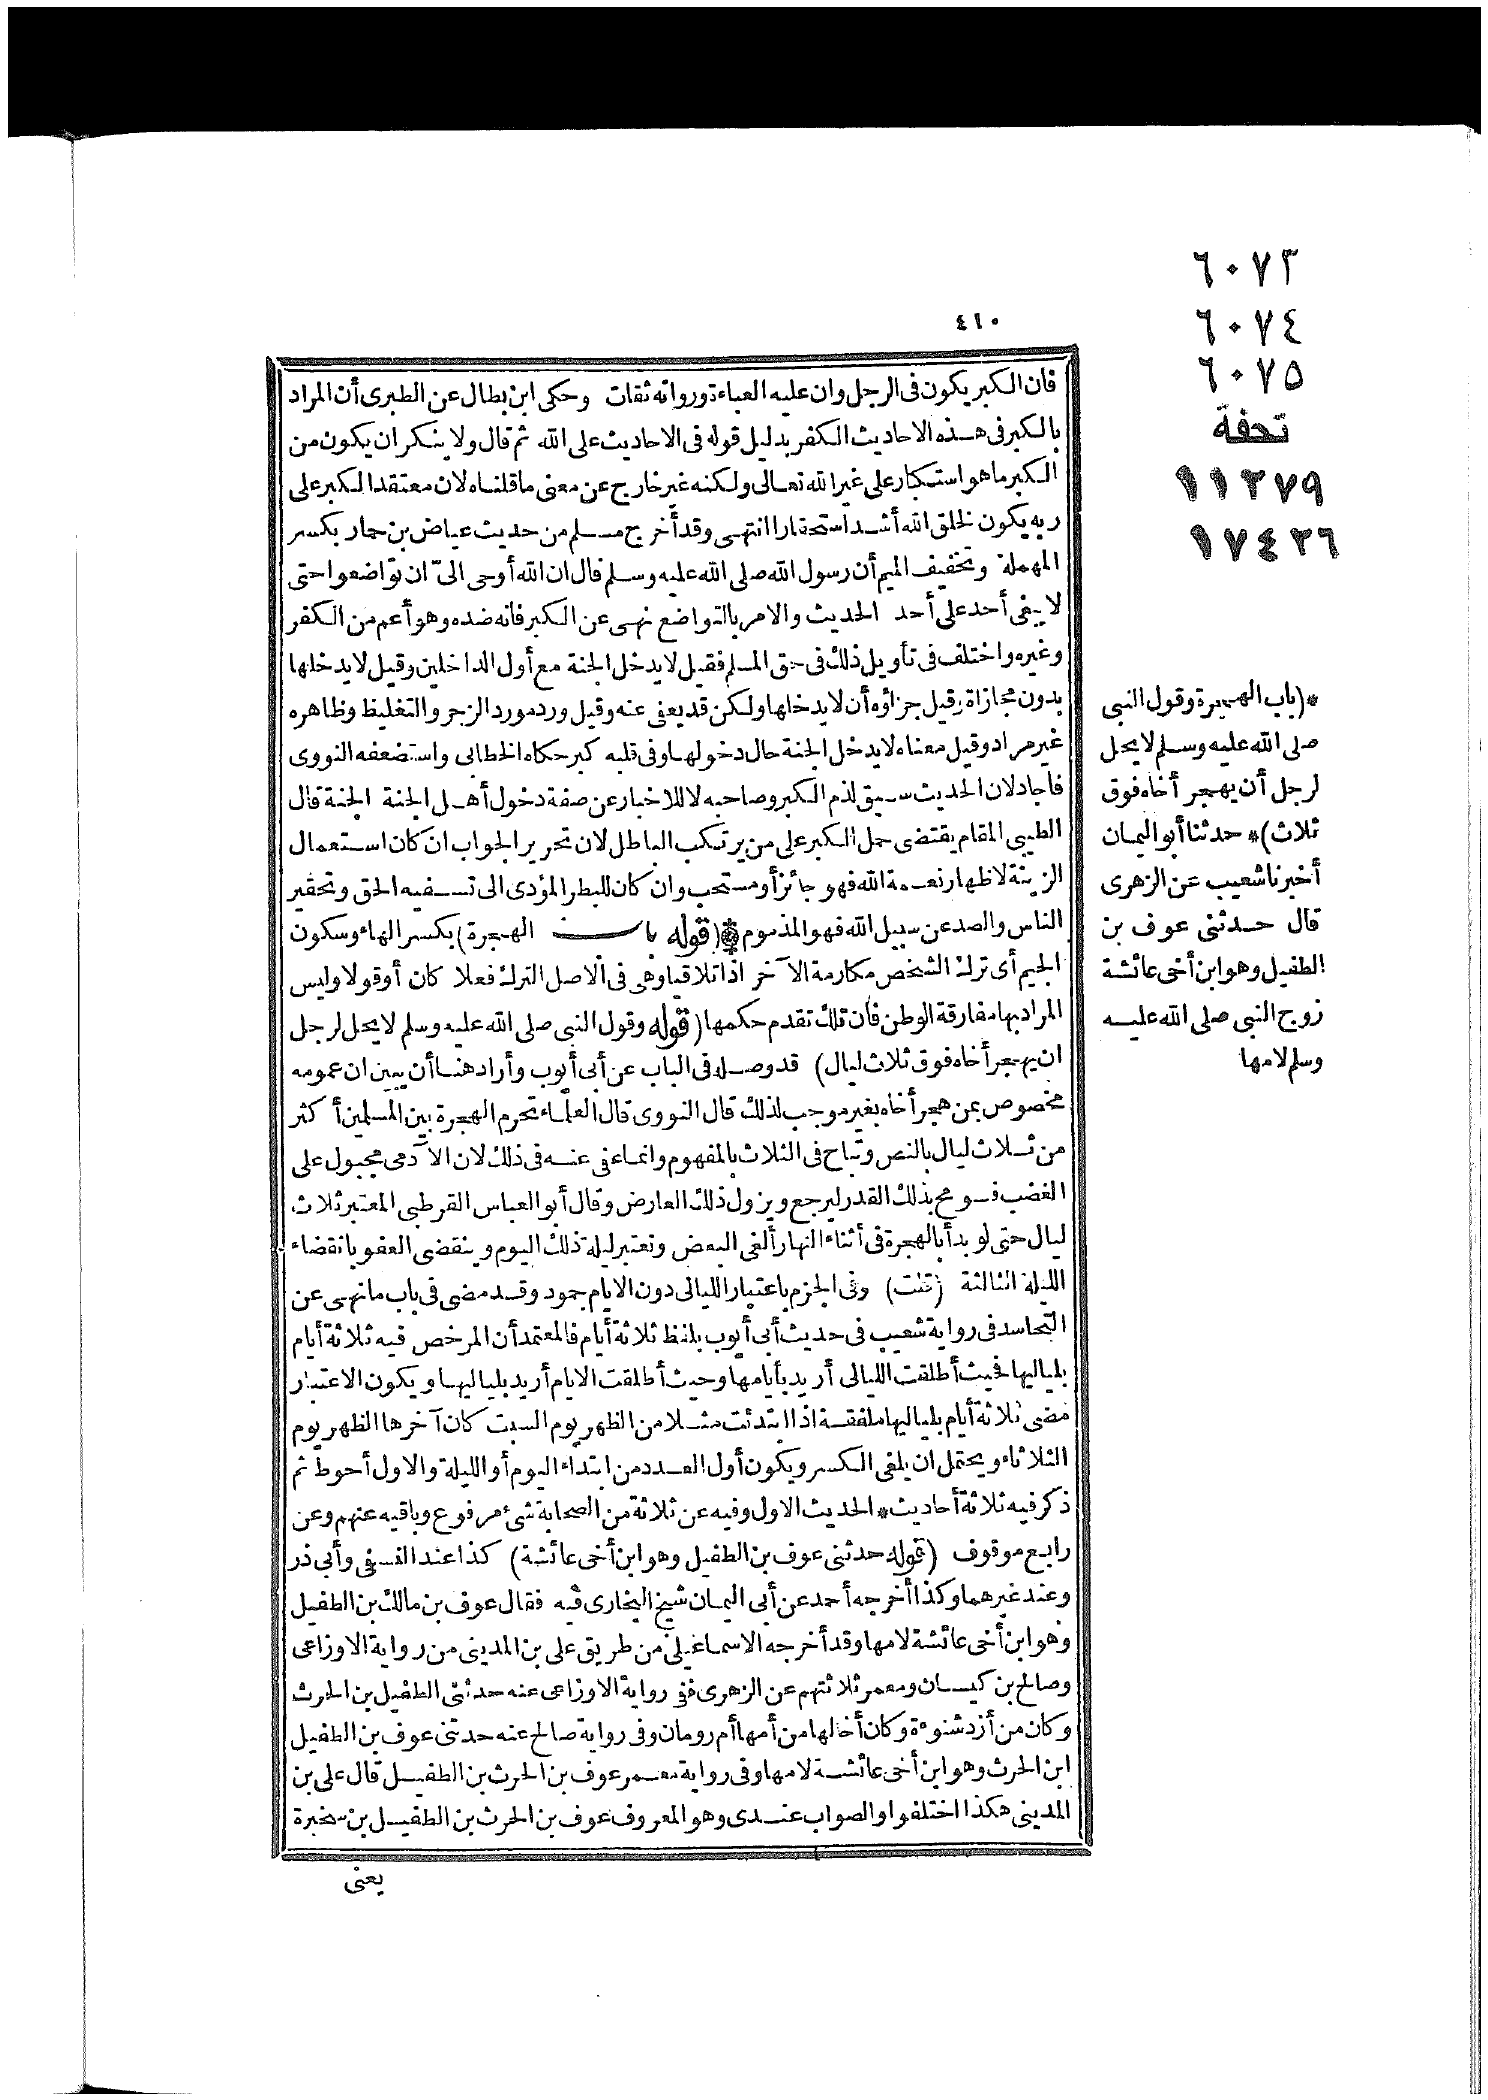 ٤١٠
فان الكبر يكون فى الرجل وان عليه العباءة ورواته ثقات وحكى ابن بطال عن الطبرى أن المراد
بالكبر فى هذه الاحاديث الكفر بدليل قوله فى الاحاديث على الله ثم قال ولا ينكر ان يكون من
الكبر ما هو استكبار على غير الله تعالى ولكنه غير خارج عن معنى ما قلناه لان معتقد الكبر على
ربه يكون لخلق الله أشد استحقارا انتهى وقد أخرج مسلم من حديث عياض بن حمار بكسر
المهملة وتخفيف الميم أن رسول الله صلى الله عليه وسلم قال ان الله أوحى الىّ ان تواضعوا حتى
لا يبغى أحد على أحد الحديث والامر بالتواضع نهى عن الكبر فانه ضده وهو أعم من الكفر
وغيره واختلف فى تأويل ذلك فى حق المسلم فقيل لا يدخل الجنة مع أول الداخلين وقيل لا يدخلها
بدون مجازاة وقيل جزاؤه أن لا يدخلها ولكن قد يعفى عنه وقيل ورد مورد الزجر والتغليظ وظاهره
غير مراد وقيل معناه لا يدخل الجنة حال دخولها وفى قلبه كبر حكاه الخطابى واستضعفه النووى
فأجاد لان الحديث سيق لذم الكبر وصاحبه لا للاخبار عن صفة دخول أهل الجنة الجنة قال
الطيبى المقام يقتضى حمل الكبر على من يرتكب الباطل لان تحرير الجواب ان كان استعمال
الزينة لاظهار نعمة الله فهو جائز أو مستحب وان كان للبطر المؤدى الى تسفيه الحق وتحقير
الناس والصد عن سبيل الله فهو المذموم ❊ (قوله باب الهجرة) بكسر الهاء وسكون
الجيم أى ترك الشخص مكالمة الآخر اذا تلاقيا وهى فى الاصل الترك فعلا كان أو قولا وليس
المراد بها مفارقة الوطن فان تلك تقدم حكمها (قوله وقول النبى صلى الله عليه وسلم لا يحل لرجل
ان يهجر أخاه فوق ثلاث ليال) قد وصله فى الباب عن أبى أيوب وأراد هنا أن يبين ان عمومه
مخصوص بمن هجر أخاه بغير موجب لذلك قال النووى قال العلماء تحرم الهجرة بين المسلمين أكثر
من ثلاث ليال بالنص وتباح فى الثلاث بالمفهوم وانما عفى عنه فى ذلك لان الآدمى مجبول على
الغضب فسومح بذلك القدر ليرجع ويزول ذلك العارض وقال أبو العباس القرطبى المعتبر ثلاث
ليال حتى لو بدأ بالهجرة فى أثناء النهار ألغى البعض وتعتبر ليلة ذلك اليوم وينقضى العفو بانقضاء
الليلة الثالثة (قلت) وفى الجزم باعتبار الليالى دون الايام جمود وقد مضى فى باب ما نهى عن
التحاسد فى رواية شعيب فى حديث أبى أيوب بلفظ ثلاثة أيام فالمعتمد أن المرخص فيه ثلاثة أيام
بلياليها فحيث أطلقت الليالى أريد بأيامها وحيث أطلقت الايام أريد بلياليها ويكون الاعتبار
مضى ثلاثة أيام بلياليها ملفقة اذا ابتدئت مثلا من الظهر يوم السبت كان آخرها الظهر يوم
الثلاثاء ويحتمل ان يلغى الكسر ويكون أول العدد من ابتداء اليوم أو الليلة والاول أحوط ثم
ذكر فيه ثلاثة أحاديث * الحديث الاول وفيه عن ثلاثة من الصحابة شىء مرفوع وباقيه عنهم وعن
رابع موقوف (قوله حدثنى عوف بن الطفيل وهو ابن أخى عائشة) كذا عند النسفى وأبى ذر
وعند غيرهما وكذا أخرجه أحمد عن أبى اليمان شيخ البخارى فيه فقال عوف بن مالك بن الطفيل
وهو ابن أخى عائشة لامها وقد أخرجه الاسماعيلى من طريق على بن المدينى من رواية الاوزاعى
وصالح بن كيسان ومعمر ثلاثتهم عن الزهرى ففى رواية الاوزاعى عنه حدثنى الطفيل بن الحرث
وكان من أزد شنوءة وكان أخا لها من أمها أم رومان وفى رواية صالح عنه حدثنى عوف بن الطفيل
ابن الحرث وهو ابن أخى عائشة لامها وفى رواية معمر عوف بن الحرث بن الطفيل قال على بن
المدينى هكذا اختلفوا والصواب عندى وهو المعروف عوف بن الحرث بن الطفيل بن سخبرة
يعنى
٦٠٧٣
٦٠٧٤
٦٠٧٥
تحفة
١١٢٧٩
١٧٤٢٦
*(باب الهجرة وقول النبى
صلى الله عليه وسلم لا يحل
لرجل أن يهجر أخاه فوق
ثلاث)* حدثنا أبو اليمان
أخبرنا شعيب عن الزهرى
قال حدثنى عوف بن
الطفيل وهو ابن أخى عائشة
زوج النبى صلى الله عليه
وسلم لامها